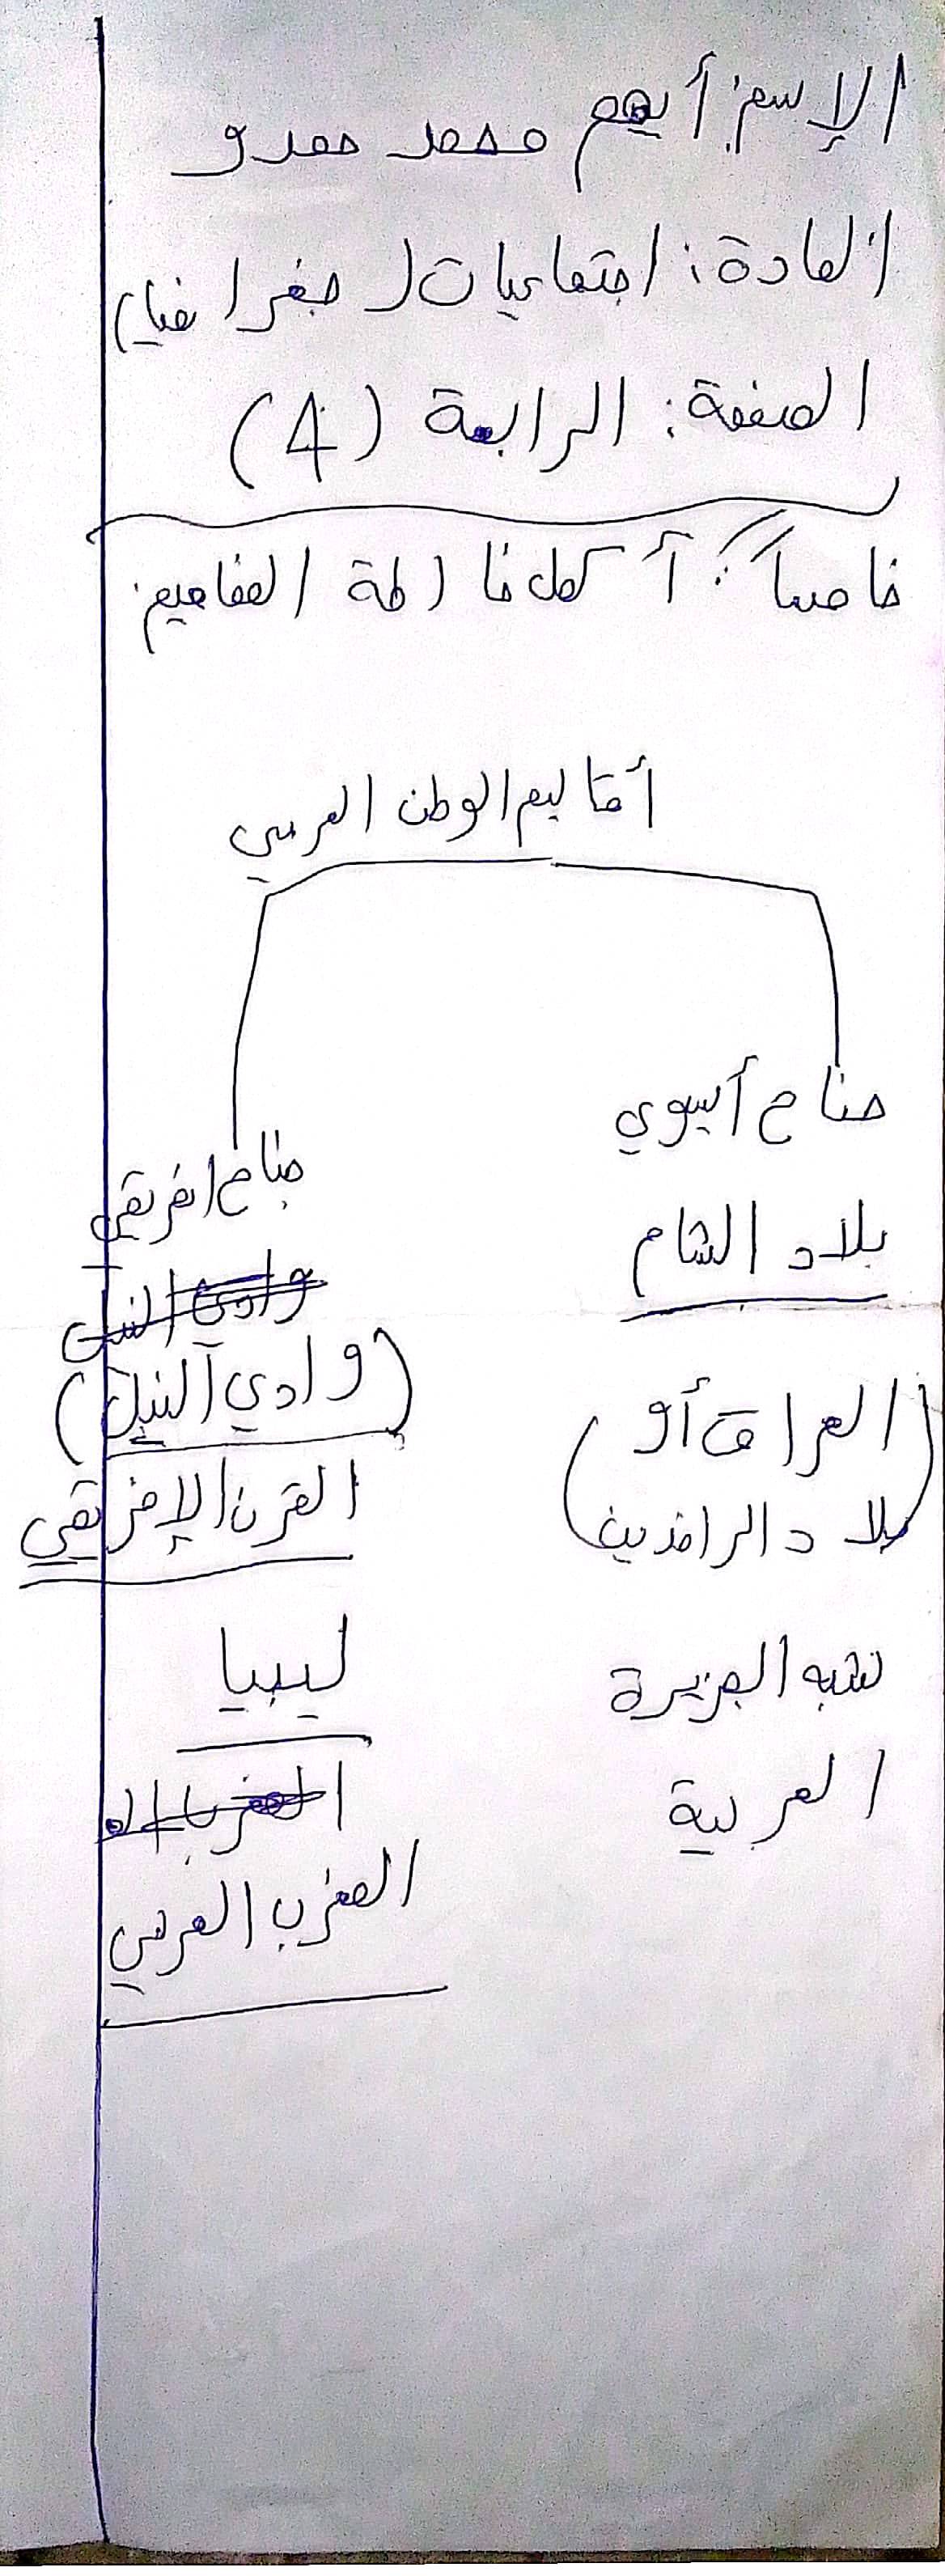 الإسم: أيهم محمد حمدو
المادة: اجتماعيات (جغرافيا)
الصفحة: الرابعة (4)
خامساً: أكمل خارطة المفاهيم:
أقاليم الوطن العربي
جناح أسيوي
جناح افريقي
بلاد الشام
وادي النيل
(وادي النيل)
(العراق أو
بلاد الرافدين)
القرن الإفريقي
ليبيا
شبه الجزيرة
العربية
المغرب العربي